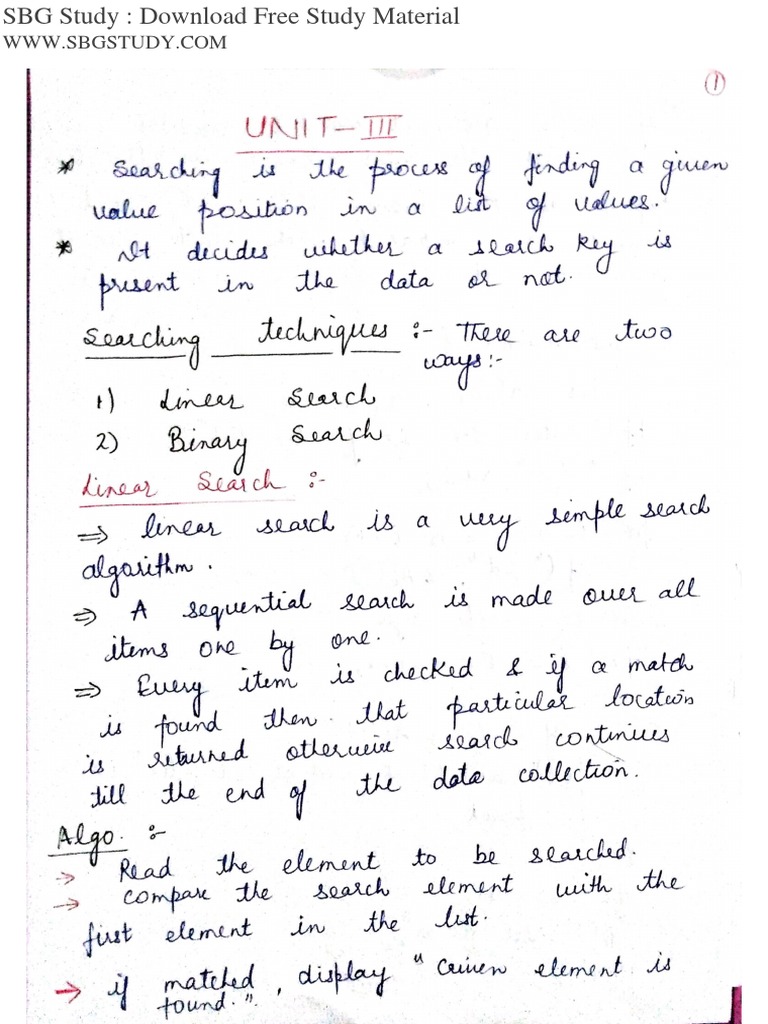 SBG Study : Download Free Study Material
WWW.SBGSTUDY.COM
1
UNIT-III
* Searching is the process of finding a given
value position in a list of values.
* It decides whether a search key is
present in the data or not.
Searching techniques :- There are two
ways:-
1) Linear Search
2) Binary Search
Linear Search :-
⇒ linear search is a very simple search
algorithm.
⇒ A sequential search is made over all
items one by one.
⇒ Every item is checked & if a match
is found then that particular location
is returned otherwise search continues
till the end of the data collection.
Algo. :-
→ Read the element to be searched.
→ compare the search element with the
first element in the list.
→ if matched, display "Given element is
found."